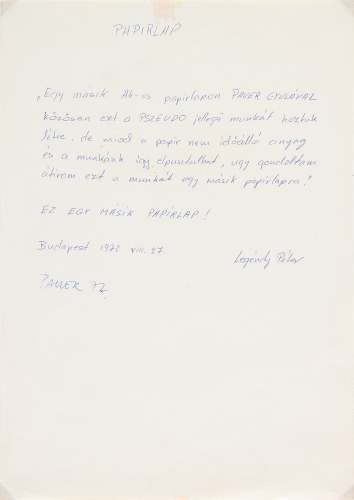 PAPIRLAP
„Egy másik A4-es papirlapon PAUER GYULÁVAL
közösen ezt a PSZEUDO jellegü munkát hoztuk
létre. de mivel a papir nem időálló anyag
és a munkánk igy elpusztulhat, ugy gondoltam
átirom ezt a munkát egy másik papirlapra."
EZ EGY MÁSIK PAPÍRLAP!
Budapest 1972 VIII. 27.
Legéndy Péter
PAUER 72